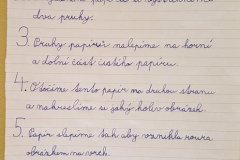 dva pruhy.
3. Pruhy papíru nalepíme na horní
a dolní část čistého papíru.
4. Otočíme tento papír na druhou stranu
a nakreslíme si jaký koliv obrázek.
5. Papír slepíme tak aby vznikla roura
obrázkem na vrch.